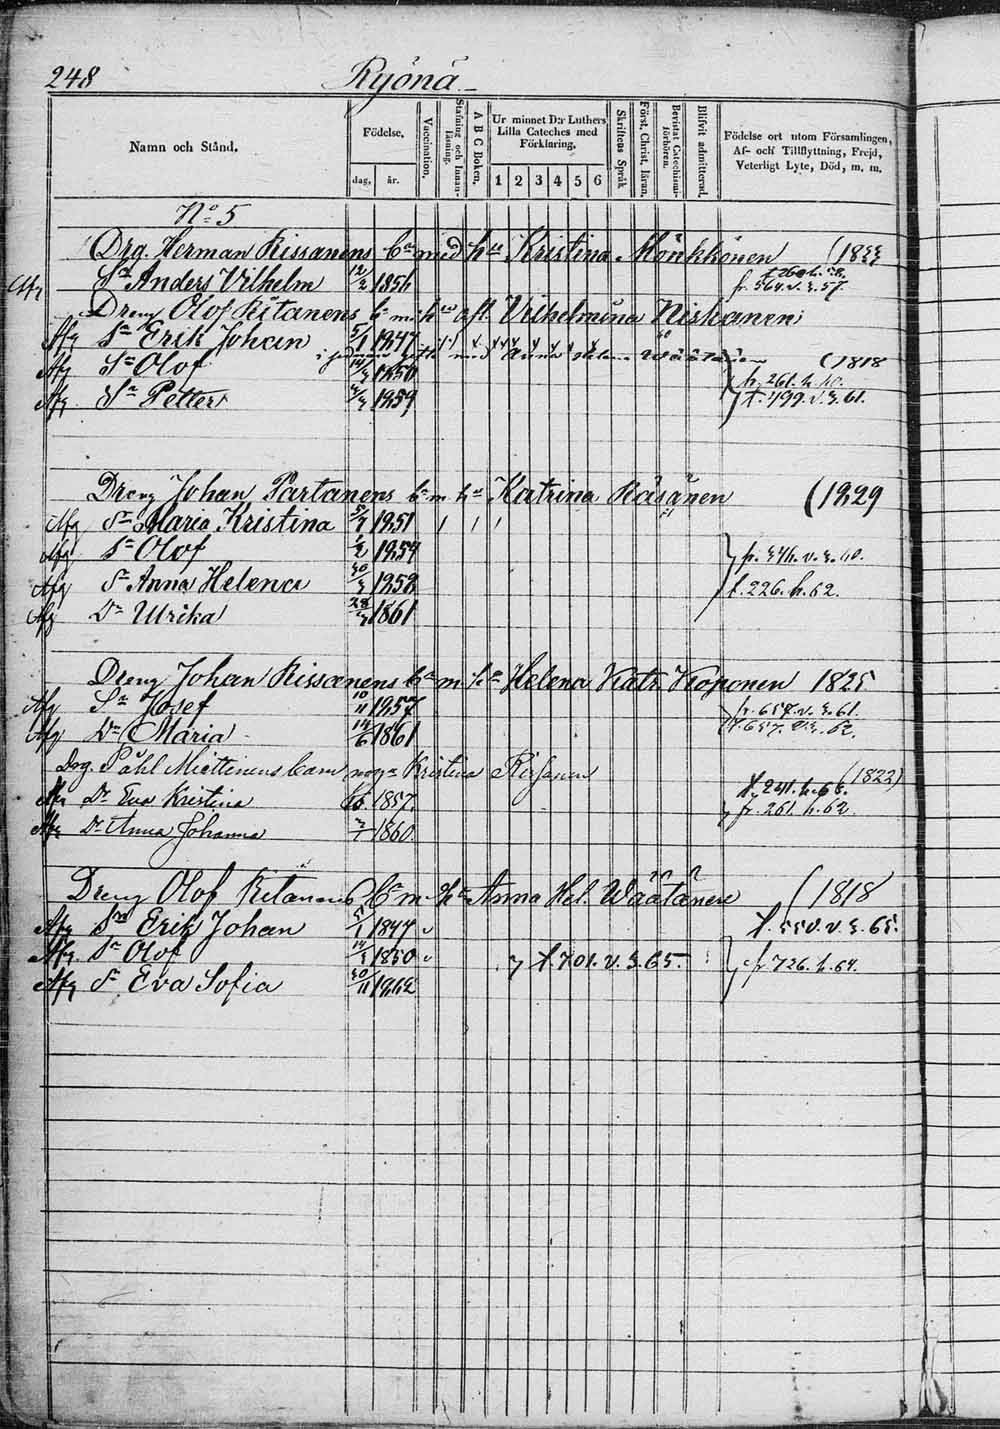 248 Ryönä
Namn och Stånd. Födelse. dag. år. Vaccination. Stafning och Innanläsning. A B C Boken. Ur minnet D:r Luthers Lilla Cateches med Förklaring. 1 2 3 4 5 6 Skriftens Språk Först. Christ. läran. Bevistat Catechismiförhören. Blifvit admitterad. Födelse ort utom Församlingen, Af- och Tillflyttning, Frejd, Veterligt Lyte, Död, m. m.
No 5
Drg. Herman Rissanens bn med hu Kristina Mönkkönen (1833
Afg Sn Anders Vilhelm 12/2 1856 fr. 564. v. 3. 57.
Dreng Olof Ritanens bn m. hu afl. Vilhelmina Niskanen
Afg Sn Erik Johan 5/1 1847
i gifte med Anna Helena Wäätäinen (1818
Afg Sn Olof 14/3 1850 fr. 261. h. 40.
Afg Sn Petter 1859 t. 499. v. 3. 61.
Dreng Johan Partanens bn m hu Katrina Räsänen (1829
Afg Dr Maria Kristina 1851
Afg Sn Olof 1854 v. 3. 60.
Afg Dr Anna Helena 30/3 1858 t. 226. h. 62.
Afg Dr Ulrika 28/3 1861
Dreng Johan Rissanens bn m hu Helena Katr. Koponen 1825
Afg Sn Josef 10/11 1857 fr. 657. v. 3. 61.
Afg Dr Maria 14/6 1861 t. 657. v. 3. 62.
Drg. Påhl Miettinens barn Kristina Rissanen (1822)
Afg Dr Eva Kristina 1857 t. 241. h. 66.
Afg Dr Anna Johanna 1860. fr. 261. h. 62.
Dreng Olof Ritanens bn m. hu Anna Hel. Wäätänen (1818
Afg Sn Erik Johan 5/1 1847 t. 550. v. 3. 65.
Afg Sn Olof 14/3 1850 t. 701. v. 3. 65. fr 726. h. 64.
Afg Dr Eva Sofia 30/11 1862